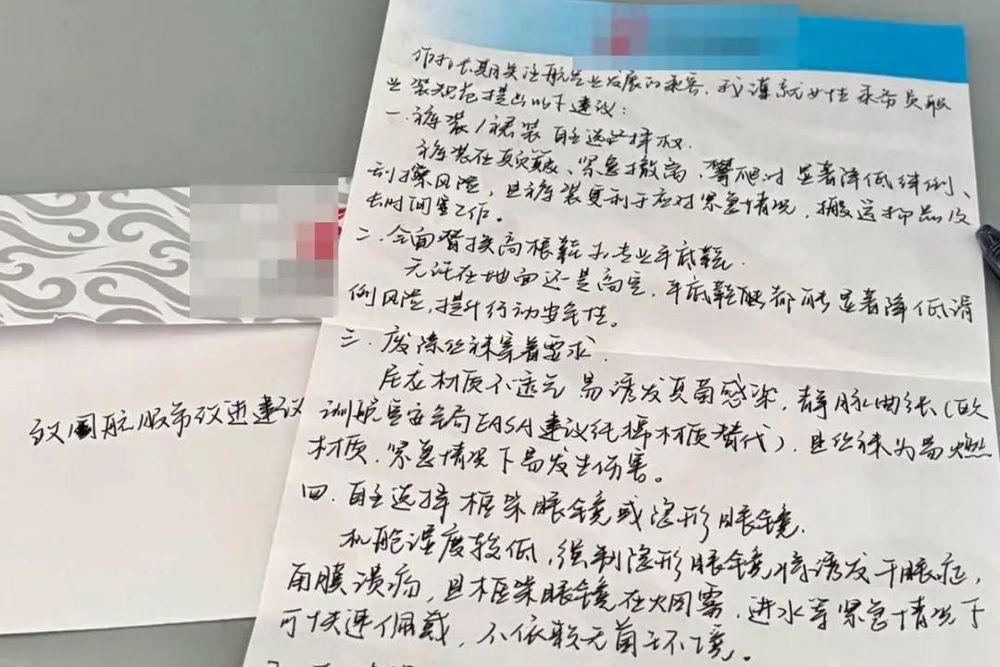 作为长期关注航空业发展的乘客，我谨就女性乘务员职
业装规范提出以下建议：
一．裤装/裙装自主选择权．
裤装在颠簸、紧急撤离，攀爬时显著降低绊倒、
刮擦风险，且裤装更利于应对紧急情况，搬运物品及
长时间工作。
二．全面替换高跟鞋为专业平底鞋．
无论在地面还是高空，平底鞋都能显著降低滑
倒风险，提升行动安全性。
三．废除丝袜穿着要求．
尼龙材质不透气易诱发真菌感染，静脉曲张（欧
洲航空安全局EASA建议纯棉材质替代），且丝袜为易燃
材质，紧急情况下易发生伤害。
四．自主选择框架眼镜或隐形眼镜．
机舱湿度较低，强制隐形眼镜易诱发干眼症，
角膜溃疡，且框架眼镜在火灾烟雾，进水等紧急情况下
可快速佩戴，不依赖无菌环境。
致国航服饰改进建议